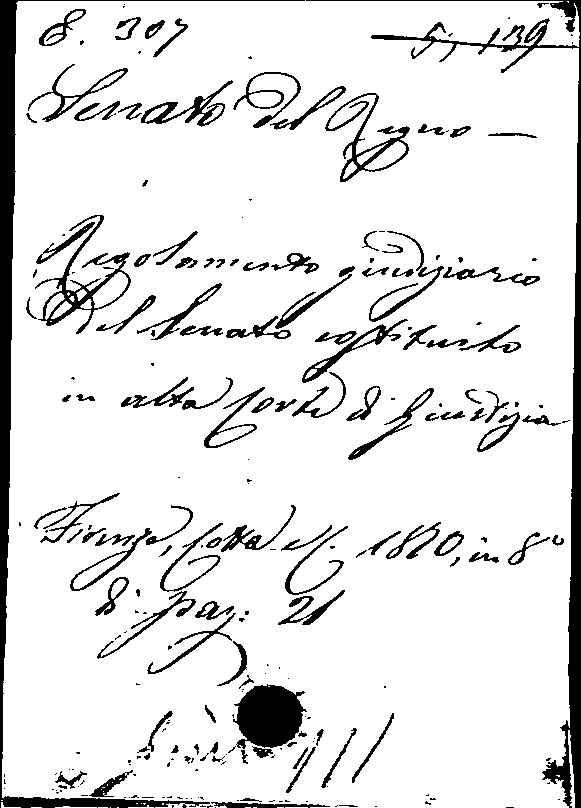 8. 307 5, 139
Senato del Regno —
Regolamento giudiziario
del Senato costituito
in alta Corte di Giustizia
Firenze, Cotta e C. 1870, in 8°
di pag: 21